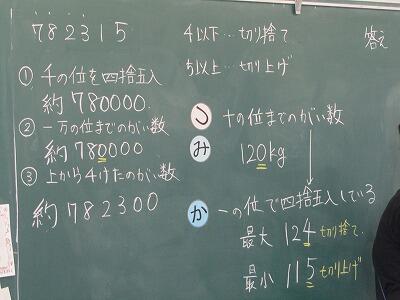 782315
①千の位を四捨五入
約780000.
②一万の位までのがい数
約780000
③上から4けたのがい数
約782300
4以下…切り捨て
5以上…切り上げ
答え
こ 十の位までのがい数
み 120kg
か 一の位で四捨五入している
最大 124 切り捨て.
最小 115 切り上げ